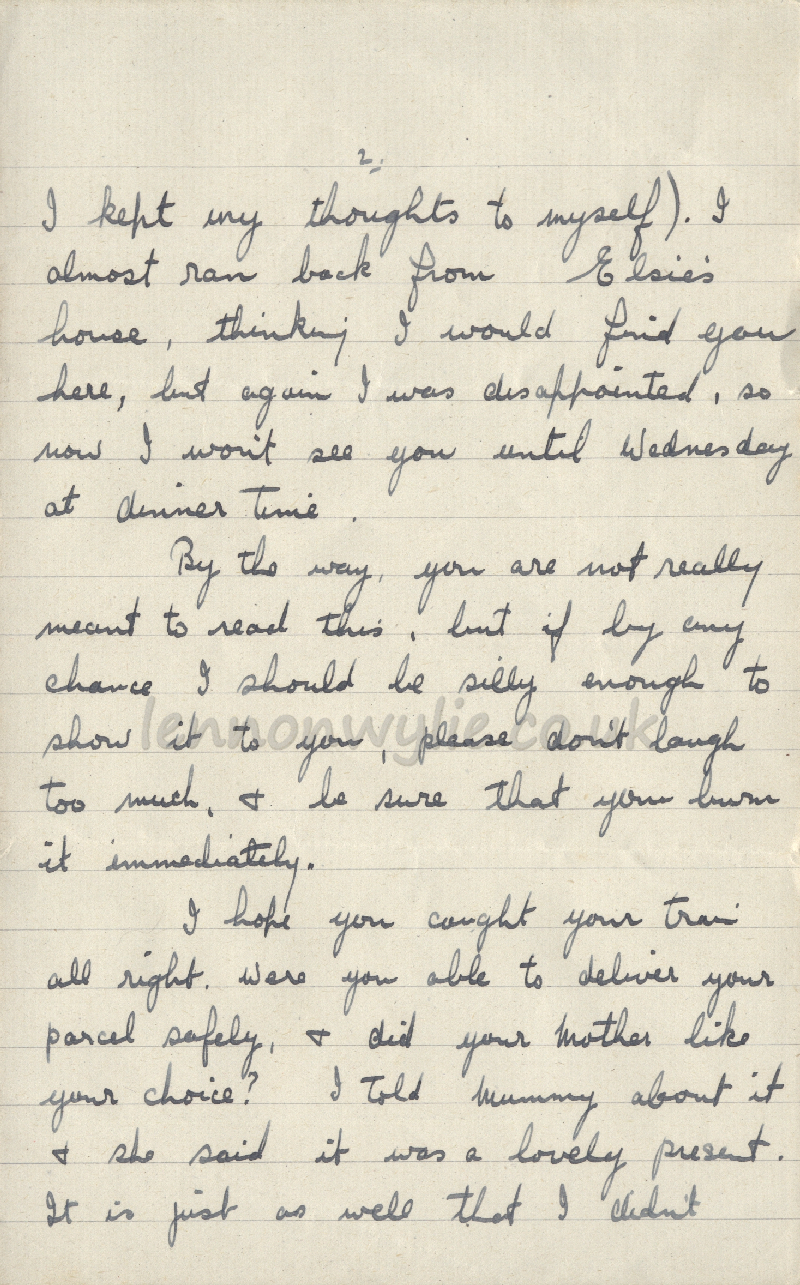 2.
I kept my thoughts to myself). I
almost ran back from Elsie's
house, thinking I would find you
here, but again I was disappointed, so
now I won't see you until Wednesday
at dinner time.
By the way, you are not really
meant to read this, but if by any
chance I should be silly enough to
show it to you, please don't laugh
lennonwylie.co.uk
too much, & be sure that you burn
it immediately.
I hope you caught your train
all right. Were you able to deliver your
parcel safely, & did your Mother like
your choice? I told Mummy about it
& she said it was a lovely present.
It is just as well that I didn't